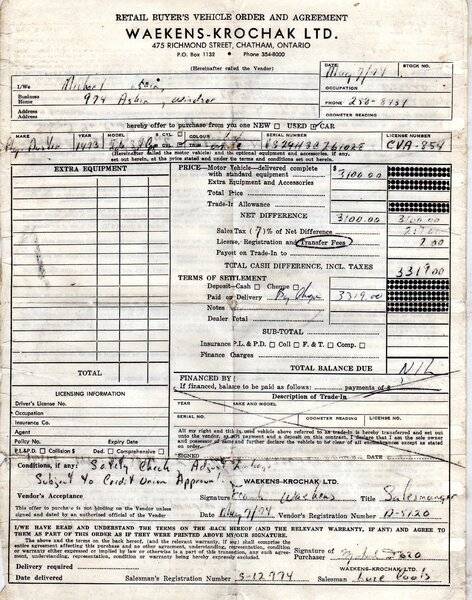 RETAIL BUYER'S VEHICLE ORDER AND AGREEMENT
WAEKENS-KROCHAK LTD.
475 RICHMOND STREET, CHATHAM, ONTARIO
P.O. Box 1132 • Phone 354-8000
(Hereinafter called the Vendor)
DATE May 7/74 STOCK NO.
I/We Michael
OCCUPATION
Business
Home 974 Windsor
PHONE
Address
Address
ODOMETER READING
hereby offer to purchase from you one NEW USED CAR
MAKE YEAR MODEL CYL. COLOUR SERIAL NUMBER LICENSE NUMBER
1973 TRIM CVA-854
(Hereinafter called the motor vehicle) and its optional equipment and accessories, if any,
set out herein, at the price stated and under the terms and conditions set out herein.
EXTRA EQUIPMENT
PRICE—Motor Vehicle—delivered complete
with standard equipment 3100.00
Extra Equipment and Accessories
Total Price
Trade-in Allowance
NET DIFFERENCE 3100.00 3100.00
Sales Tax (7)% of Net Difference 217.00
License, Registration and Transfer Fees 2.00
Payout on Trade-in to
TOTAL CASH DIFFERENCE, INCL. TAXES 3319.00
TERMS OF SETTLEMENT
Deposit—Cash Cheque
Paid on Delivery 3319.00
Notes
Dealer Total
SUB-TOTAL
Insurance P.L. & P.D. Coll F. & T. Comp.
Finance Charges
TOTAL BALANCE DUE Nil
TOTAL
FINANCED BY:
If financed, balance to be paid as follows: payments of
LICENSING INFORMATION
Description of Trade-in
Driver's License No.
YEAR MAKE AND MODEL
Occupation
SERIAL NO. ODOMETER READING LICENSE NO.
Insurance Co.
Agent
All my right and title in the used vehicle above referred to as trade-in is hereby transferred and set out
Policy No. Expiry Date
P.L.&P.D. Collision $ Ded. Comprehensive
SIGNED
Conditions, if any: Safety Check
Subject to Credit Union Approval
WAEKENS-KROCHAK LTD.
Vendor's Acceptance Signature Frank Waekens Title Salesmanager
This offer to purchase is not binding on the Vendor unless
signed and dated by an authorized official of the Vendor
Date May 7/74 Vendor's Registration Number
I/WE HAVE READ AND UNDERSTAND THE TERMS ON THE BACK HEREOF (AND THE RELEVANT WARRANTY, IF ANY) AND AGREE TO
THEM AS PART OF THIS ORDER AS IF THEY WERE PRINTED ABOVE MY/OUR SIGNATURE.
The above and the terms on the back hereof, (and the relevant warranty, if any) shall comprise the
entire agreement affecting the purchase and no other agreement, understanding, representation, condition
or warranty either expressed or implied by law or otherwise is a part of this transaction, any such agree-
ment, understanding, representation, condition or warranty being hereby expressly excluded.
Signature of
Purchaser
Delivery required
WAEKENS-KROCHAK LTD.
Date delivered Salesman's Registration Number S-12774 Salesman